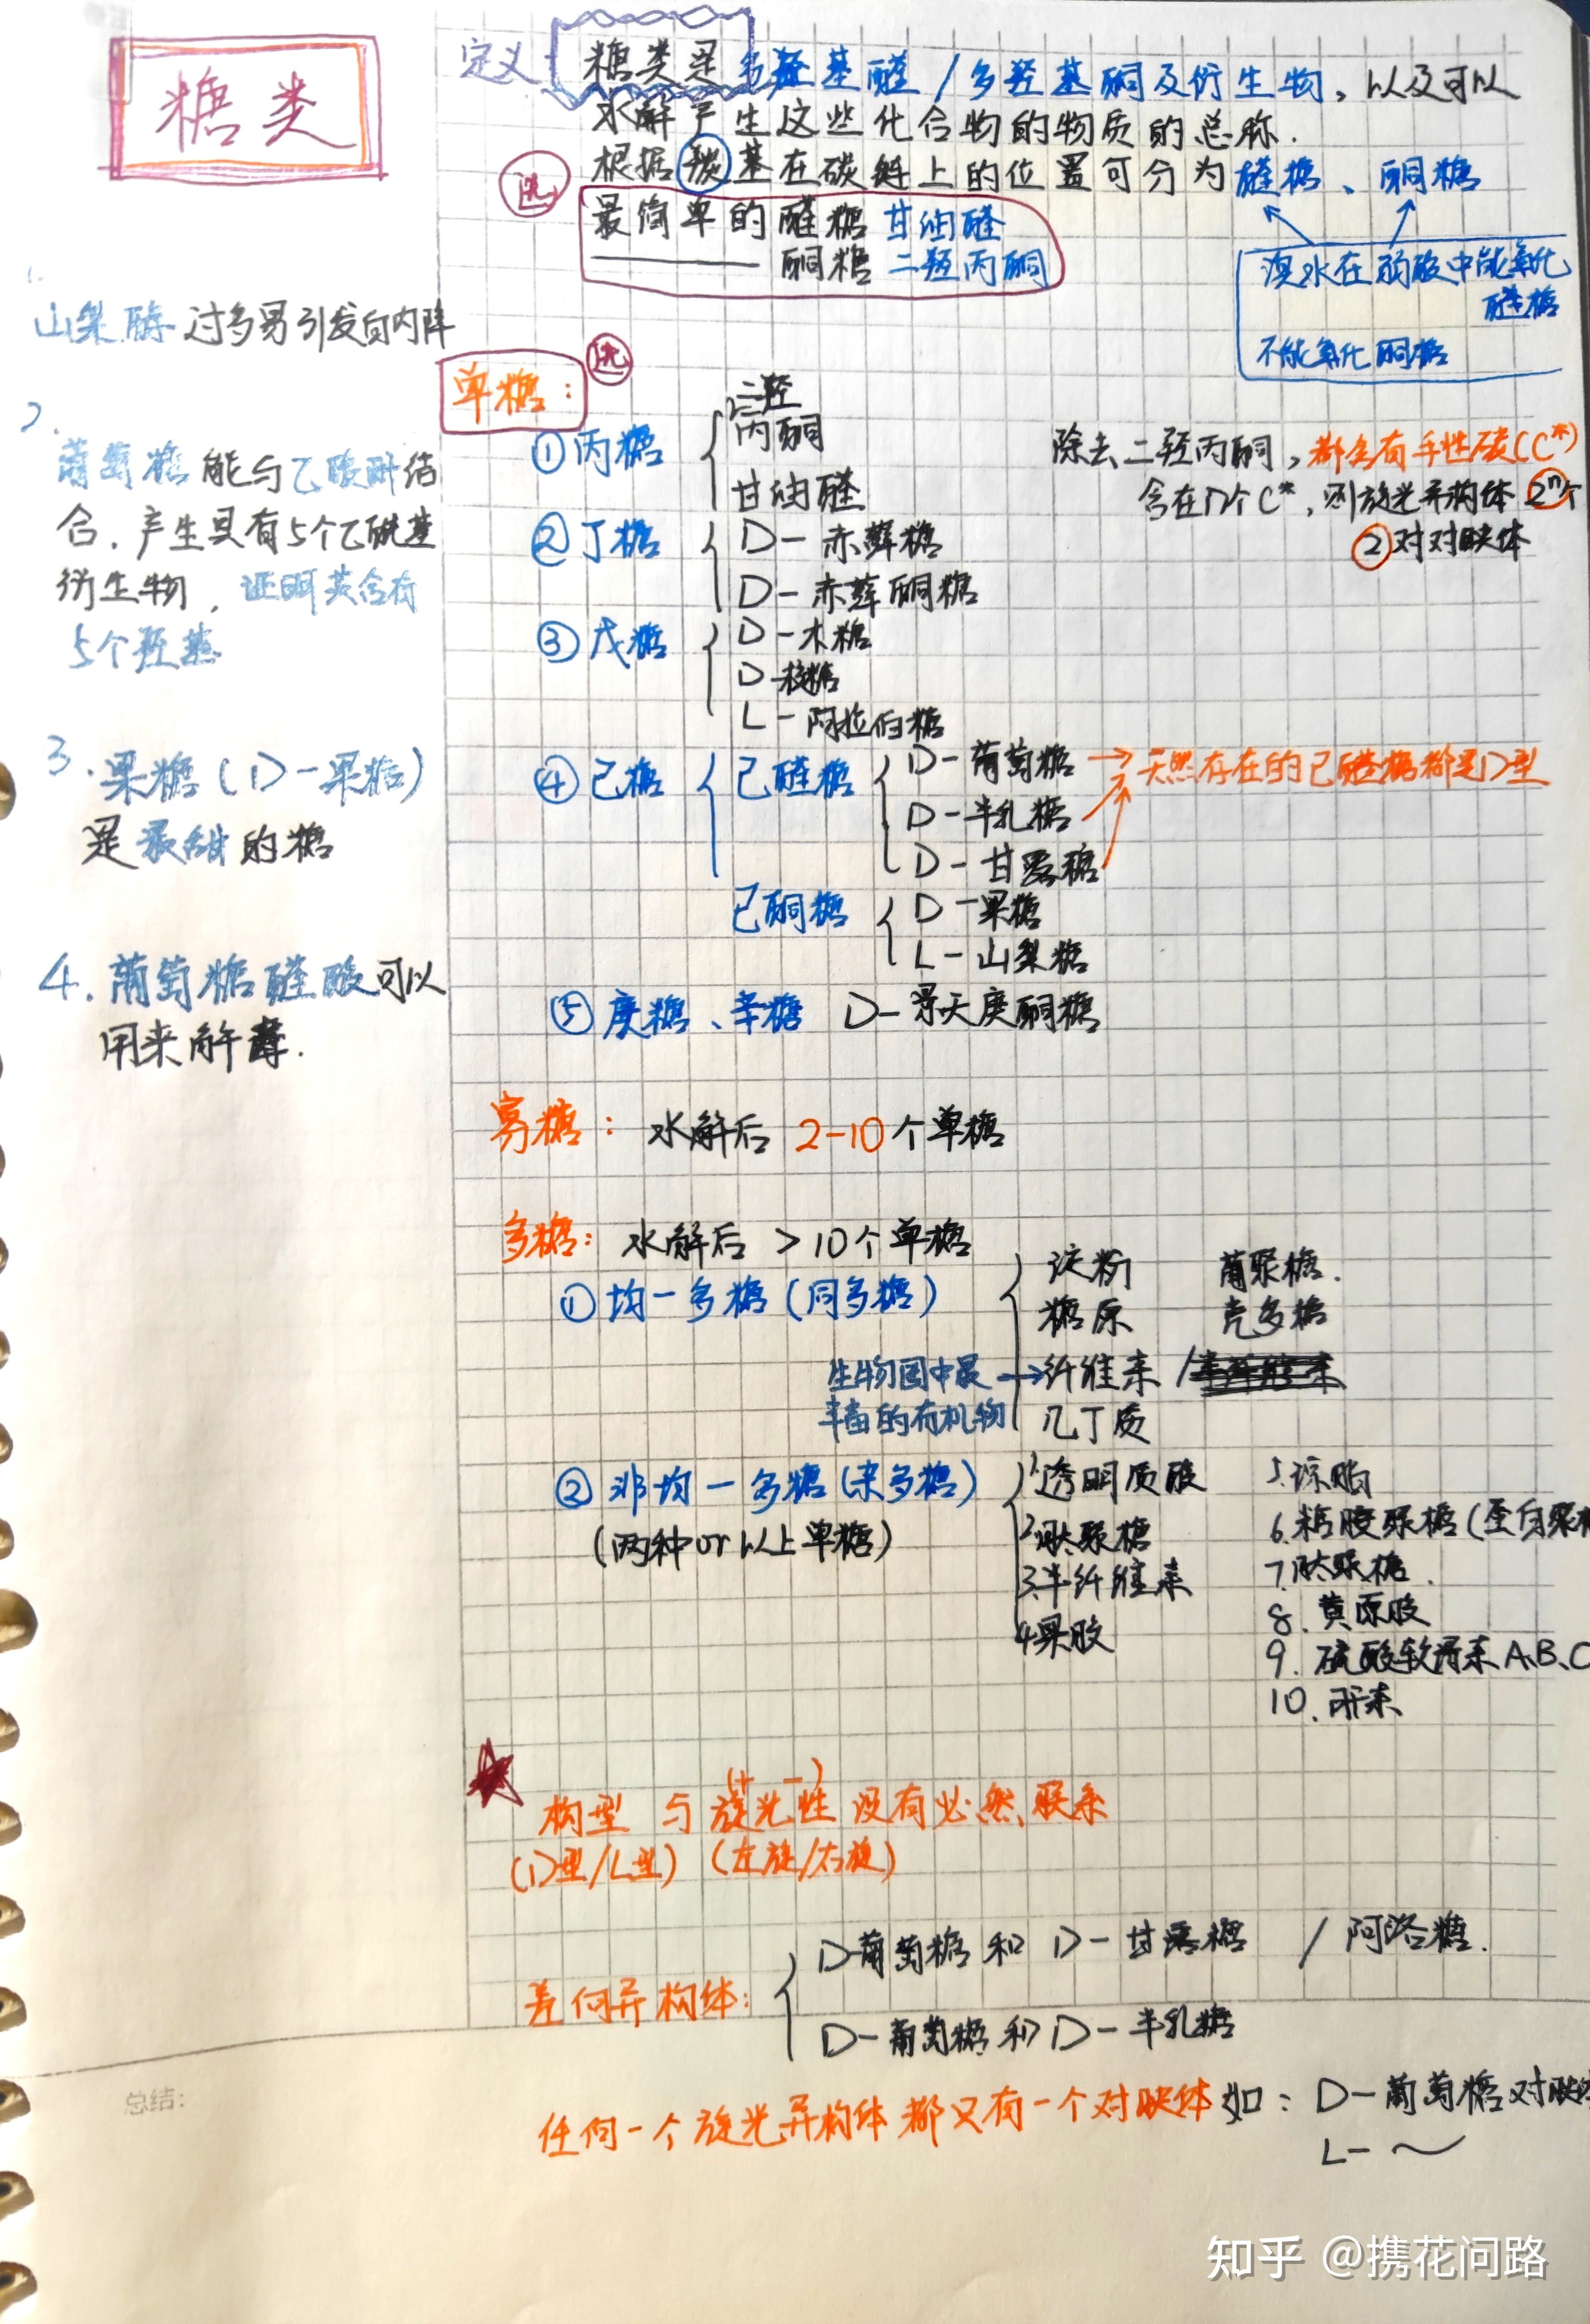 糖类
定义
糖类是多羟基醛/多羟基酮及衍生物，以及可以
水解产生这些化合物的物质的总称.
选
根据羰基在碳链上的位置可分为醛糖、酮糖
最简单的醛糖 甘油醛
——— 酮糖 二羟丙酮
溴水在弱酸中能氧化
醛糖
不能氧化酮糖
1.
山梨醇过多易引发白内障
2.
葡萄糖能与乙酸酐结
合.产生具有5个乙酰基
衍生物，证明其含有
5个羟基
3.果糖(D-果糖)
是最甜的糖
4.葡萄糖醛酸可以
用来解毒.
单糖:
选
①丙糖
二羟
丙酮
甘油醛
除去二羟丙酮,都含有手性碳(C*)
含在n个C*,则旋光异构体2ⁿ个
②对对映体
②丁糖
D-赤藓糖
D-赤藓酮糖
③戊糖
D-木糖
D-核糖
L-阿拉伯糖
④己糖
己醛糖
D-葡萄糖→天然存在的己醛糖都是D型
D-半乳糖
D-甘露糖
己酮糖
D-果糖
L-山梨糖
⑤庚糖、辛糖 D-景天庚酮糖
寡糖: 水解后 2-10个单糖
多糖: 水解后 >10个单糖
①均一多糖(同多糖)
淀粉 葡聚糖.
糖原 壳多糖
生物圈中最→纤维素/
丰富的有机物
几丁质
②非均一多糖(杂多糖)
(两种or以上单糖)
1透明质酸
2肽聚糖
3.半纤维素
4果胶
5.琼脂
6.糖胺聚糖(蛋白聚糖
7.肽聚糖.
8.黄原胶
9.硫酸软骨素A、B、C
10.肝素
(+ -)
构型 与 旋光性 没有必然联系
(D型/L型) (左旋/右旋)
差向异构体:
D-葡萄糖和 D-甘露糖 / 阿洛糖.
D-葡萄糖和D-半乳糖
总结:
任何一个旋光异构体都只有一个对映体如: D-葡萄糖对映体
L-～
知乎 @携花问路